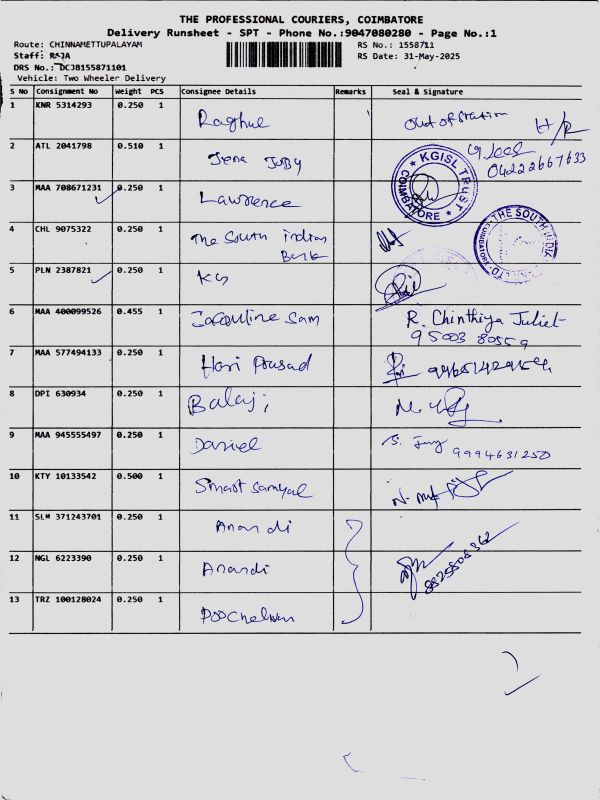 THE PROFESSIONAL COURIERS, COIMBATORE
Delivery Runsheet - SPT - Phone No.:9047080280 - Page No.:1
Route: CHINNAMETTUPALAYAM
RS No.: 1558711
Staff: RAJA
RS Date: 31-May-2025
DRS No.: DCJB155871101
Vehicle: Two Wheeler Delivery
S No Consignment No Weight PCS Consignee Details Remarks Seal & Signature
1 KNR 5314293 0.250 1 Raghul out of station H/R
2 ATL 2041798 0.510 1 Jena Juby
04222667633
KGISL TRUST COIMBATORE
3 MAA 708671231 0.250 1 Lawrence
4 CHL 9075322 0.250 1 The South indian Bank
THE SOUTH INDIA
5 PLN 2387821 0.250 1 KG
6 MAA 400099526 0.455 1 Jacquline Sam R. Chinthiya Juliet
95003 80559
7 MAA 577494133 0.250 1 Hari Prasad
8 DPI 630934 0.250 1 Balaji
9 MAA 945555497 0.250 1 Daniel 9994631250
10 KTY 10133542 0.500 1 Smart
11 SLM 371243701 0.250 1 Anandi
12 NGL 6223390 0.250 1 Anandi
13 TRZ 100128024 0.250 1